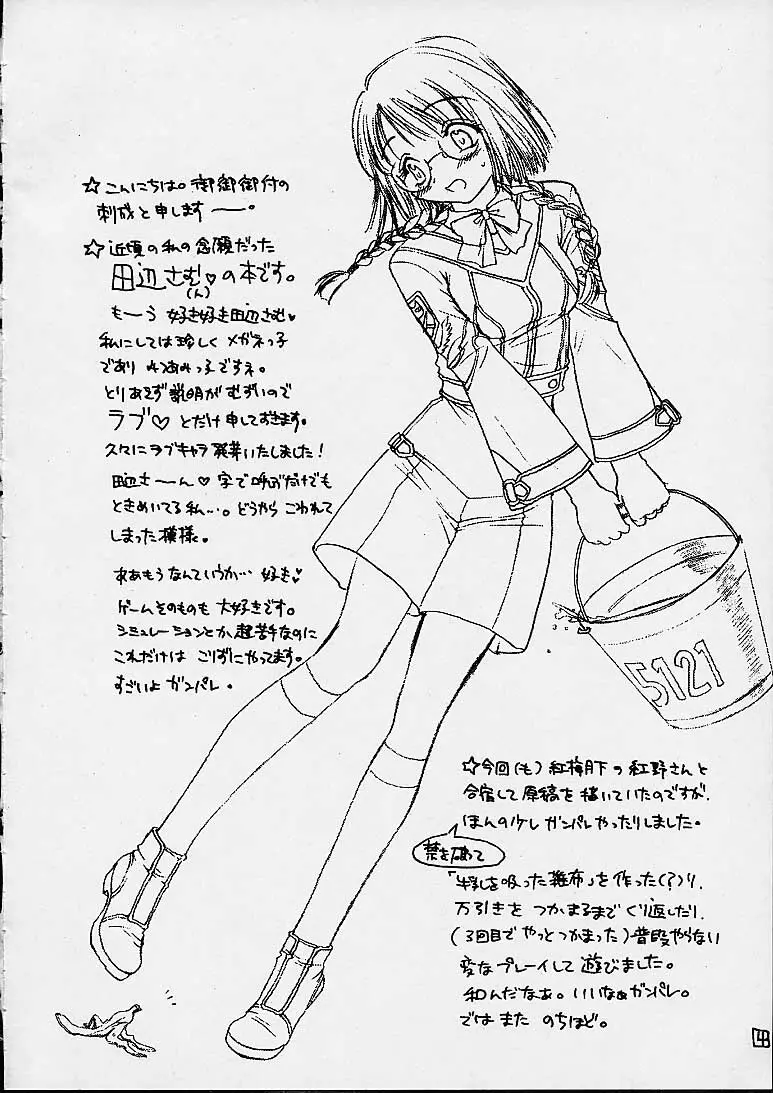 ☆こんにちは。御御御付の
刺成と申しますーー。
☆近頃の私の念願だった
田辺さむ♡の本です。
(ん)
もーう 好き好き田辺さむ♡
私にしては珍しくメガネっ子
であり みつあみっ子ですネ。
とりあえず説明がむずいので
ラブ♡ とだけ申しておきます。
久々にラブキャラ発芽いたしました!
田辺さーーん♡字で呼ぶだけでも
ときめいてる私…。どうやら こわれて
しまった模様。
ああもうなんていうか… 好き♡
ゲームそのものも 大好きです。
シミュレーションとか超苦手なのに
これだけは こりずにやってます。
すごいよ ガンパレ。
5121
☆今回(も)紅梅月下の紅野さんと
合宿して原稿を描いていたのですが、
ほんの少し ガンパレやったりしました。
禁を破って
「牛乳を吸った雑布」を作った(?)り、
万引きを つかまるまで くり返したり、
(3回目で やっとつかまった)普段やらない
変なプレイして 遊びました。
和んだなぁ。いいなぁガンパレ。
では また のちほど。
4